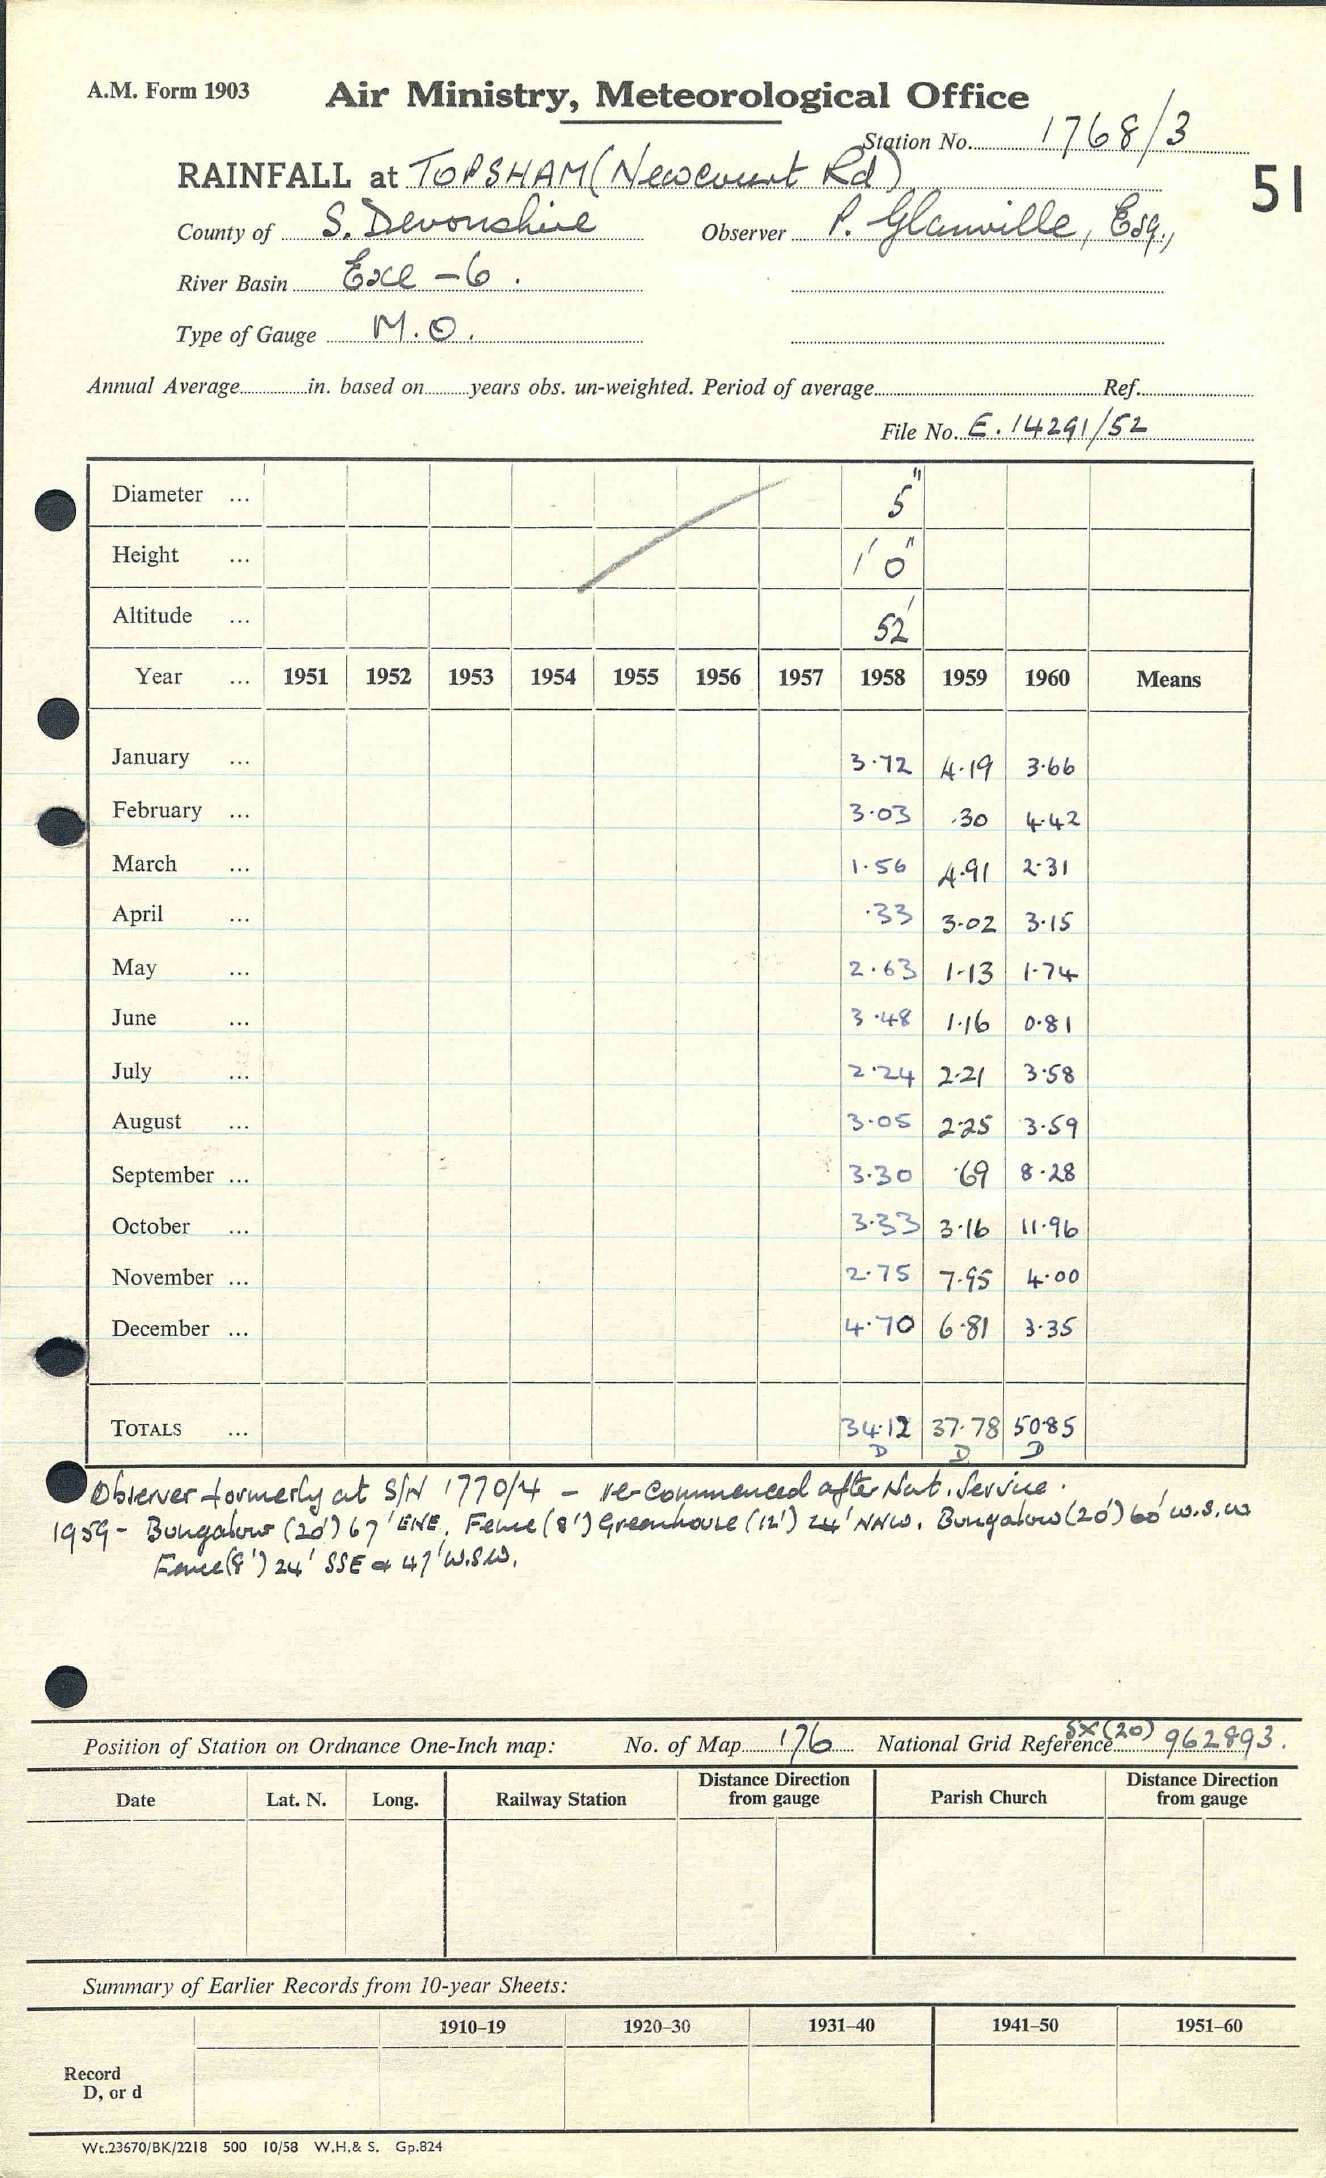 A.M. Form 1903
Air Ministry, Meteorological Office
Station No. 1768/3
RAINFALL at TOPSHAM (Newcourt Rd)
51
County of S. Devonshire Observer P. Glanville, Esq.,
River Basin Exe - 6.
Type of Gauge M.O.
Annual Average in. based on years obs. un-weighted. Period of average Ref.
File No. E.14291/52
Diameter ... 5"
Height ... 1' 0"
Altitude ... 52'
Year ... 1951 1952 1953 1954 1955 1956 1957 1958 1959 1960 Means
January ... 3.72 4.19 3.66
February ... 3.03 .30 4.42
March ... 1.56 4.91 2.31
April ... .33 3.02 3.15
May ... 2.63 1.13 1.74
June ... 3.48 1.16 0.81
July ... 2.24 2.21 3.58
August ... 3.05 2.25 3.59
September ... 3.30 .69 8.28
October ... 3.33 3.16 11.96
November ... 2.75 7.95 4.00
December ... 4.70 6.81 3.35
TOTALS ... 34.12 37.78 50.85
D D D
Observer formerly at S/N 1770/4 - re-commenced after Nat. Service.
1959 - Bungalow (20') 67' ENE, Fence (8') Greenhouse (12') 24' NNW, Bungalow (20') 60' W.S.W
Fence (8') 24' SSE & 47' W.S.W.
Position of Station on Ordnance One-Inch map: No. of Map 176 National Grid Reference SX(20) 962893.
Date Lat. N. Long. Railway Station Distance Direction from gauge Parish Church Distance Direction from gauge
Summary of Earlier Records from 10-year Sheets:
1910–19 1920–30 1931–40 1941–50 1951–60
Record
D, or d
Wt.23670/BK/2218 500 10/58 W.H.& S. Gp.824